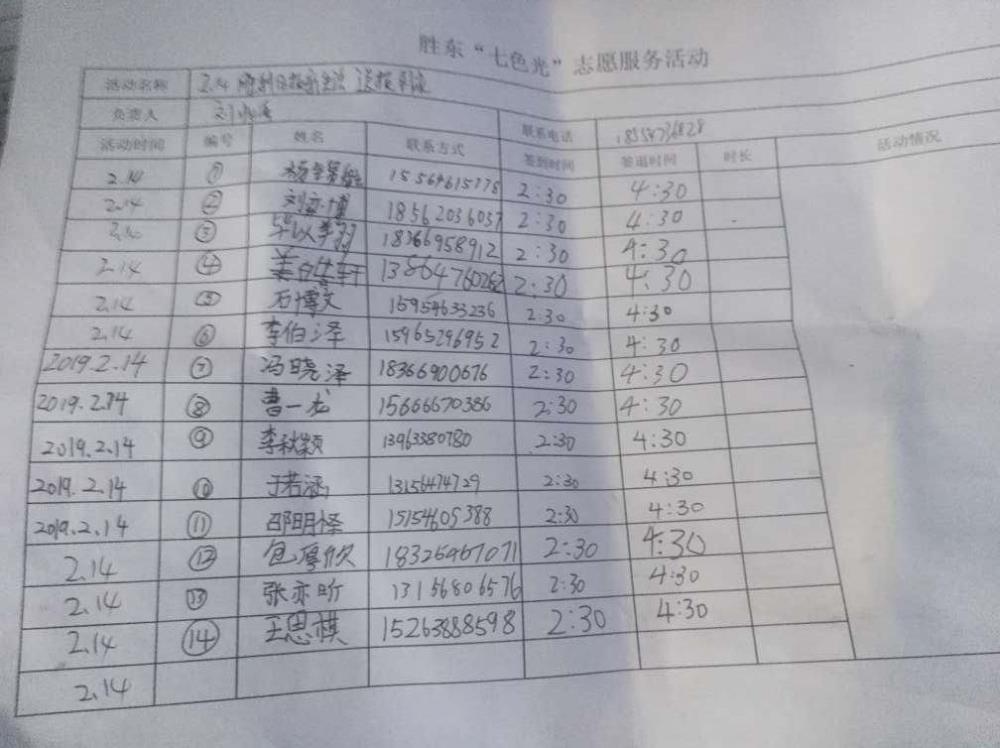 胜东“七色光”志愿服务活动
活动名称 2.14 胜利日报新生活 送报
负责人 刘 联系电话 18554736828
活动时间 编号 姓名 联系方式 签到时间 签退时间 时长 活动情况
2.14 ① 杨 15564615778 2:30 4:30
2.14 ② 刘亦博 18562036037 2:30 4:30
2.14 ③ 毕以李羽 18366958912 2:30 4:30
2.14 ④ 13864760262 2:30 4:30
2.14 ⑤ 石博文 15954633236 2:30 4:30
2.14 ⑥ 李伯泽 15965296952 2:30 4:30
2019.2.14 ⑦ 冯晓泽 18366900676 2:30 4:30
2019.2.14 ⑧ 曹一龙 15666670386 2:30 4:30
2019.2.14 ⑨ 李秋颖 13963380780 2:30 4:30
2019.2.14 ⑩ 于若涵 13156474729 2:30 4:30
2019.2.14 ⑪ 邵明怿 15154605388 2:30 4:30
2.14 ⑫ 包厚欣 18326967071 2:30 4:30
2.14 ⑬ 张亦昕 13156806576 2:30 4:30
2.14 ⑭ 王思祺 15263888598 2:30 4:30
2.14